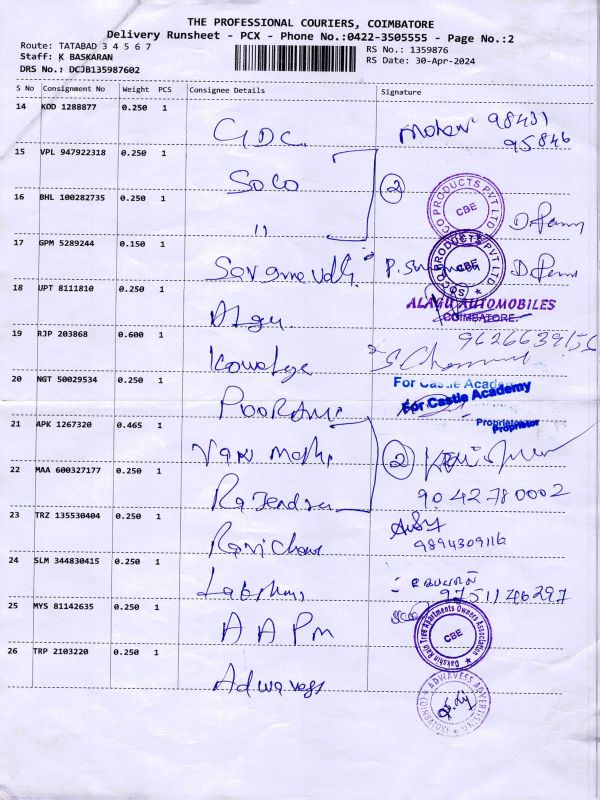 THE PROFESSIONAL COURIERS, COIMBATORE
Delivery Runsheet - PCX - Phone No.:0422-3505555 - Page No.:2
Route: TATABAD 3 4 5 6 7
Staff: K BASKARAN
DRS No.: DCJB135987602
RS No.: 1359876
RS Date: 30-Apr-2024
S No Consignment No Weight PCS Consignee Details Signature
14 KOD 1288877 0.250 1 GDC 98431
95846
15 VPL 947922318 0.250 1 SoCo 2
16 BHL 100282735 0.250 1 "
SOCO PRODUCTS PVT LTD CBE
17 GPM 5289244 0.150 1
SOCO PRODUCTS PVT LTD CBE
18 UPT 8111810 0.250 1 Algu
ALAGU AUTOMOBILES
COIMBATORE.
19 RJP 203868 0.600 1 9626639156
20 NGT 50029534 0.250 1
For Castle Academy
For Castle Academy
Proprietor
Proprietor
21 APK 1267320 0.465 1 2
22 MAA 600327177 0.250 1 Rajendran 9042780002
23 TRZ 135530404 0.250 1
9894309116
24 SLM 344830415 0.250 1 9751146297
25 MYS 81142635 0.250 1 AAPM
Dakshin Rain Tree Apartments Owners Association CBE
26 TRP 2103220 0.250 1 Adwavess
ADWAVESS ADVERTISING COIMBATORE